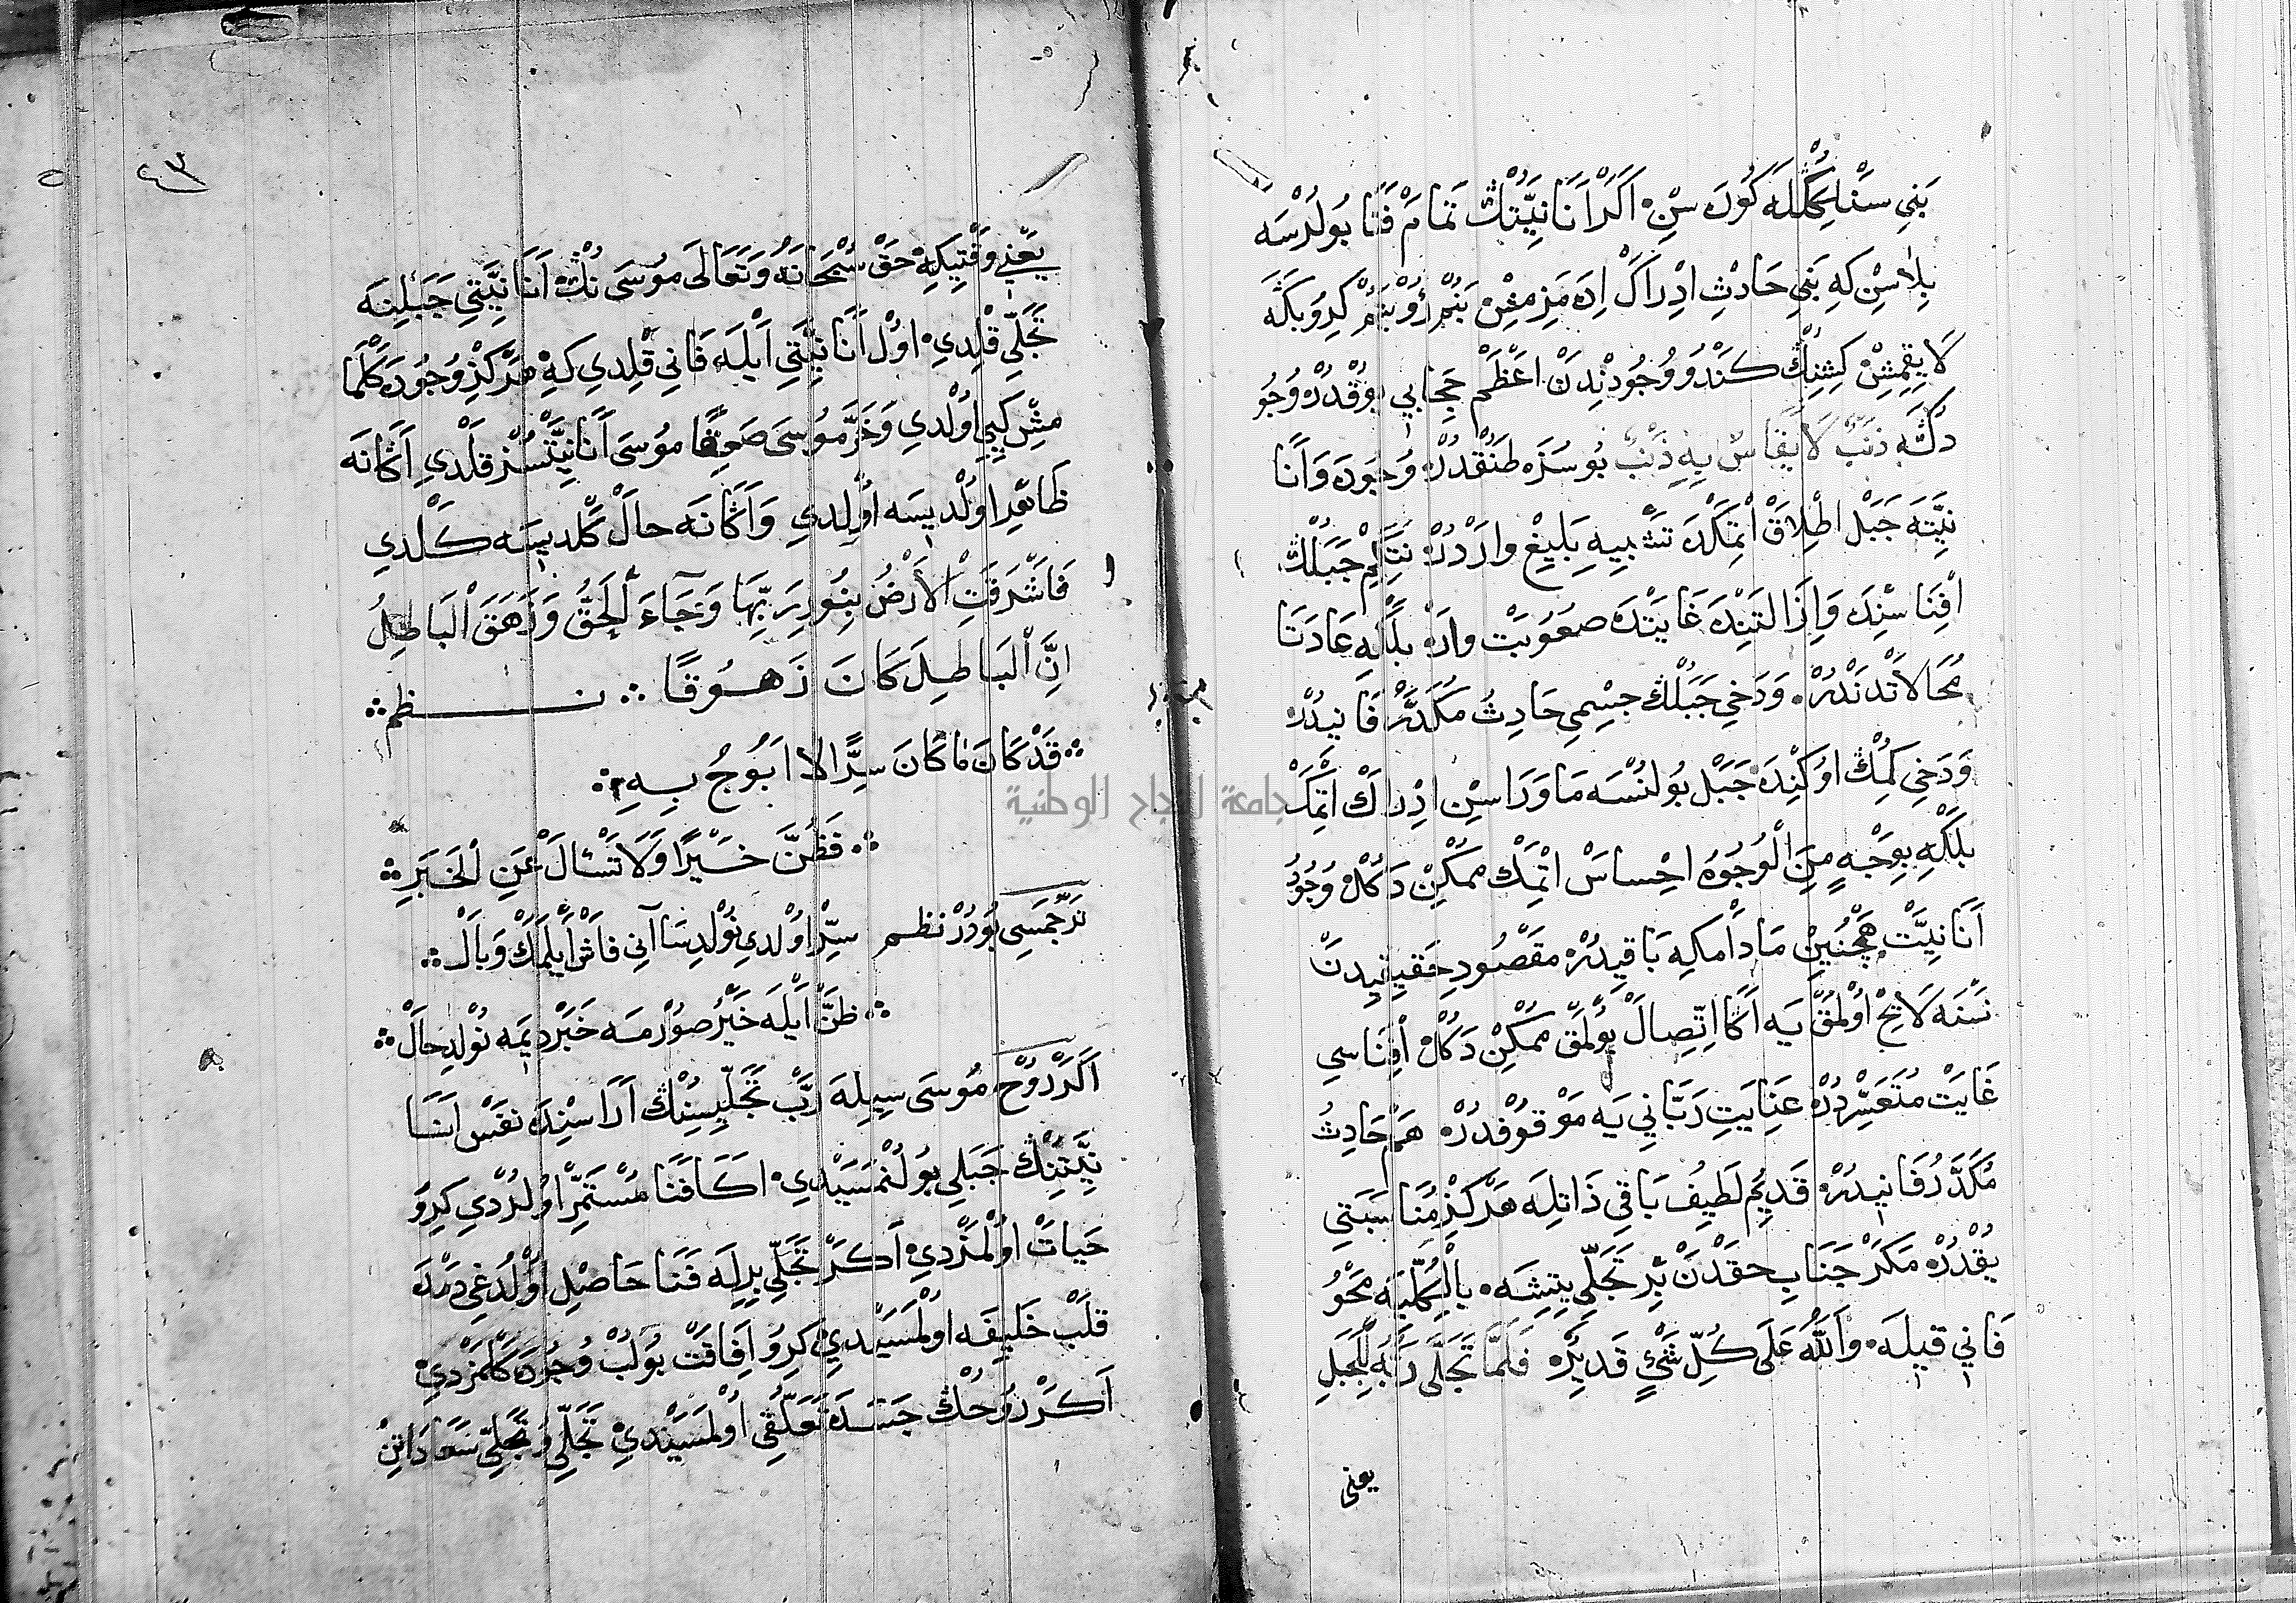 بَنِي سَنْ اكِّلَه كُورَسِنْ اَكَرْ اَنَانِيَّتُڭْ تَمَامْ فَنَا بُولُرْسَه
بِلَاسِنْ كِه بَنِي حَادِثِ اِدْرَاكْ اِدَه مَزِمِشْ بَنُمْ رُؤْيَتُمْ كِرُو بَكَه
لَايِقِمِشْ كِشِنُڭْ كَنْدُو وُجُودِنْدَنْ اَعْظَمْ حِجَابِي يُوقْدُرْ وُجُو
دُكَ ذَنْبٌ لَا يُقَاسُ بِهِ ذَنْبٌ بُو سُزَه طَنُقْدُرْ وُجُودَه وَ اَنَا
نِيَّتَه جَبَلْ اِطْلَاقْ اِتْمَكْدَه تَشْبِيهِ بَلِيغْ وَارْدُرْ نِتَكِمْ جَبَلُڭْ
اِفْنَاسِنْدَه وَاِزَالَتِنْدَه غَايَتْدَه صُعُوبَتْ وَارْ بَلْكِه عَادَتَا
مُحَالَاتْدَنْدُرْ وَدَخِي جَبَلُڭْ جِسْمِي حَادِثْ مُكَدَّرْ فَانِيدُرْ
وَدَخِي كِمُڭْ اوُكِنْدَه جَبَلْ بُولُنْسَه مَاوَرَاسِنْ اِدْرَاكْ اِتْمَكْ
بَلْكِه بِوَجْهٍ مِنَ الْوُجُوهْ اِحْسَاسْ اِتْمَكْ مُمْكِنْ دَكُلْ وُجُودُ
اَنَانِيَّتْ هَمْچُنِينْ مَادَامَكِه بَاقِيدُرْ مَقْصُودِ حَقِيقِيدَنْ
نَسْنَه لَايِحْ اُولْمَقْ يَه اَكَا اِتِّصَالْ بُولْمَقْ مُمْكِنْ دَكُلْ اِفْنَاسِي
غَايَتْ مُتَعَسِّرْدُرْ عِنَايَتِ رَبَّانِي يَه مَوْقُوفْدُرْ هَمْ حَادِثُ
مُكَدَّرُ فَانِيدُرْ قَدِيمْ لَطِيفْ بَاقِي ذَاتِلَه هَرْكَزْ مُنَاسَبَتِي
يُقْدُرْ مَكَرْ جَنَابِ حَقْدَنْ بِرْ تَجَلِّي يِتِشَه بِالْكُلِّيَّه مَحْوُ
فَانِي قِيلَه وَاللهُ عَلَى كُلِّ شَيْءٍ قَدِيرْ فَلَمَّا تَجَلَّى رَبُّهُ لِلْجَبَلِ
يعنى
٤٣
يَعْنِي وَقْتِيكِه حَقْ سُبْحَانَهُ وَتَعَالَى مُوسَى نُڭْ اَنَانِيَّتِي جَبَلِنَه
تَجَلِّي قِلْدِي اوُلْ اَنَانِيَّتِي اَيْلَه فَانِي قِلْدِي كِه هَرْكَزْ وُجُودَه كَلْمَا
مِشْ كِبِي اوُلْدِي وَخَرَّ مُوسَى صَعِقًا مُوسَى اَنَانِيَّتْسُزْ قَلْدِي اَڭَا نَه
ظَاهِرْ اوُلْدِيسَه اوُلْدِي وَاَڭَا نَه حَالْ كَلْدِيسَه كَلْدِي
فَاَشْرَقَتِ الْاَرْضُ بِنُورِ رَبِّهَا وَجَاءَ الْحَقُّ وَزَهَقَ الْبَاطِلُ
اِنَّ الْبَاطِلَ كَانَ زَهُوقًا ∴ نظم ∴
∴ قَدْ كَانَ مَا كَانَ سِرًّا لَا اَبُوحُ بِهِ ∴
∴ فَظُنَّ خَيْرًا وَلَا تَسْئَالْ عَنِ الْخَبَرِ ∴
تَرْجَمَسِي بُودُرْ نظم سِرّْ اوُلْدِي نُولْدِيسَا آنِي فَاشْ اَيْلَمَكْ وَبَالْ ∴
∴ ظَنّْ اَيْلَه خَيْرْ صُورْمَه خَبَرْ دِيمَه نُولْدِ حَالْ ∴
اَكَرْ رُوحْ مُوسَى سِيلَه رَبّْ تَجَلِّيسِنُڭْ اَرَاسِنْدَه نَفْسْ اَنَا
نِيَّتِنُڭْ جَبَلِي بُولُنْمَسَيْدِي اَكَا فَنَا مُسْتَمِرّْ اوُلُرْدِي كِرُو
حَيَاتْ اوُلْمَزْدِي اَكَرْ تَجَلِّي بِرْلَه فَنَا حَاصِلْ اوُلُدُغِي دَمْدَه
قَلْبْ خَلِيفَه اوُلْمَسَيْدِي كِرُو اِفَاقَتْ بُولُبْ وُجُودَه كَلْمَزْدِي
اَكَرْ رُوحُڭْ جَسَدَه تَعَلُّقِي اوُلْمَسَيْدِي تَجَلِّي وُ تَحَلِّي سَعَادَاتِنْ